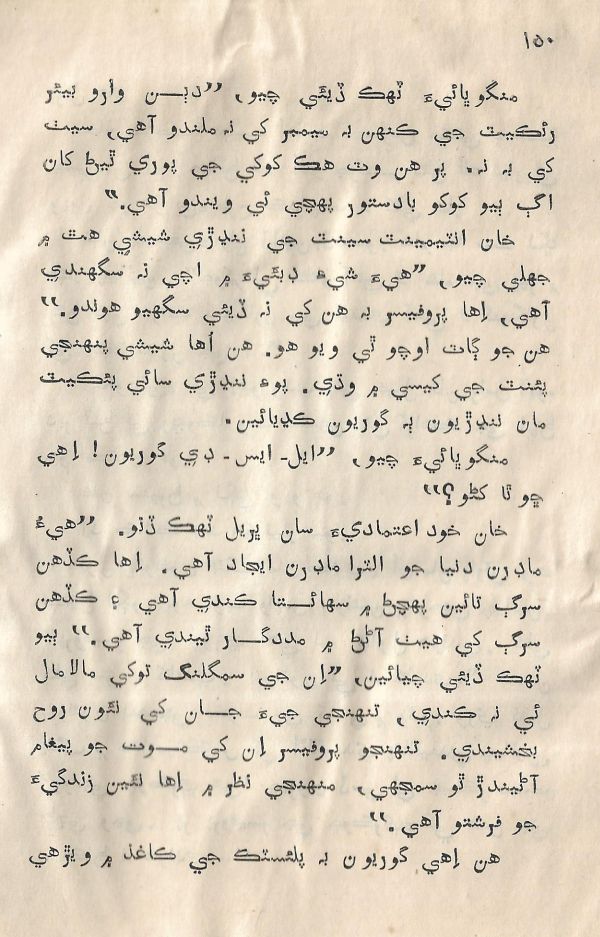 ١٥٠
منگو ڀائيءَ ٽهڪ ڏيئي چيو, ”دٻــن وارو ٻيٽر
رئڪيٽ جي ڪنهن بہ سيمبر کي نہ ملندو آهي, سيٺ
کي بہ نہ. پر هن وٽ هڪ کوکي جي پوري ٿيڻ کان
اڳ ٻيو کوکو بادستور پهچي ئي ويندو آهي.“
خان انٽيمينٽ سينٽ جي ننڍڙي شيشي هٿ ۾
جهلي چيو, ”هيءَ شيءِ دٻيءَ ۾ اچي نہ سگهندي
آهي, اِها پروفيسر بہ هن کي نہ ڏيئي سگهيو هوندو.“
هن جو ڳاٽ اوچو ٿي ويو هو. هن اُها شيشي پنهنجي
پئنٽ جي کيسي ۾ وڌي. پوءِ ننڍڙي سائي پئڪيٽ
مان ننڍڙيون ٻہ گوريون ڪڍيائين.
منگو ڀائيءَ چيو, ”ايل۔ ايس۔ ڊي گوريون! اِهي
ڇو ٿا کڻو؟“
خان خود اعتماديءَ سان ڀريل ٽهڪ ڏنو. ”هيءُ
ماڊرن دنيا جو الٽرا ماڊرن ايجاد آهي. اِها ڪڏهن
سرڳ تائين پهچڻ ۾ سهائــتا ڪندي آهي ۽ ڪڏهن
سرڳ کي هيٺ آڻڻ ۾ مددگــار ٿيندي آهي.“ ٻيو
ٽهڪ ڏيئي چيائين, ”اِن جي سمگلنگ توکي مالامال
ئي نہ ڪندي, تنهنجي جيءَ جــان کي نئون روح
بخشيندي. تنهنجو پروفيسر اِن کي مــوت جو پيغام
آڻيندڙ ٿو سمجهي, منهنجي نظر ۾ اِها نئين زندگيءَ
جو فرشتو آهي.“
هن اِهي گوريون بہ پلئسٽڪ جي ڪاغذ ۾ ويڙهي